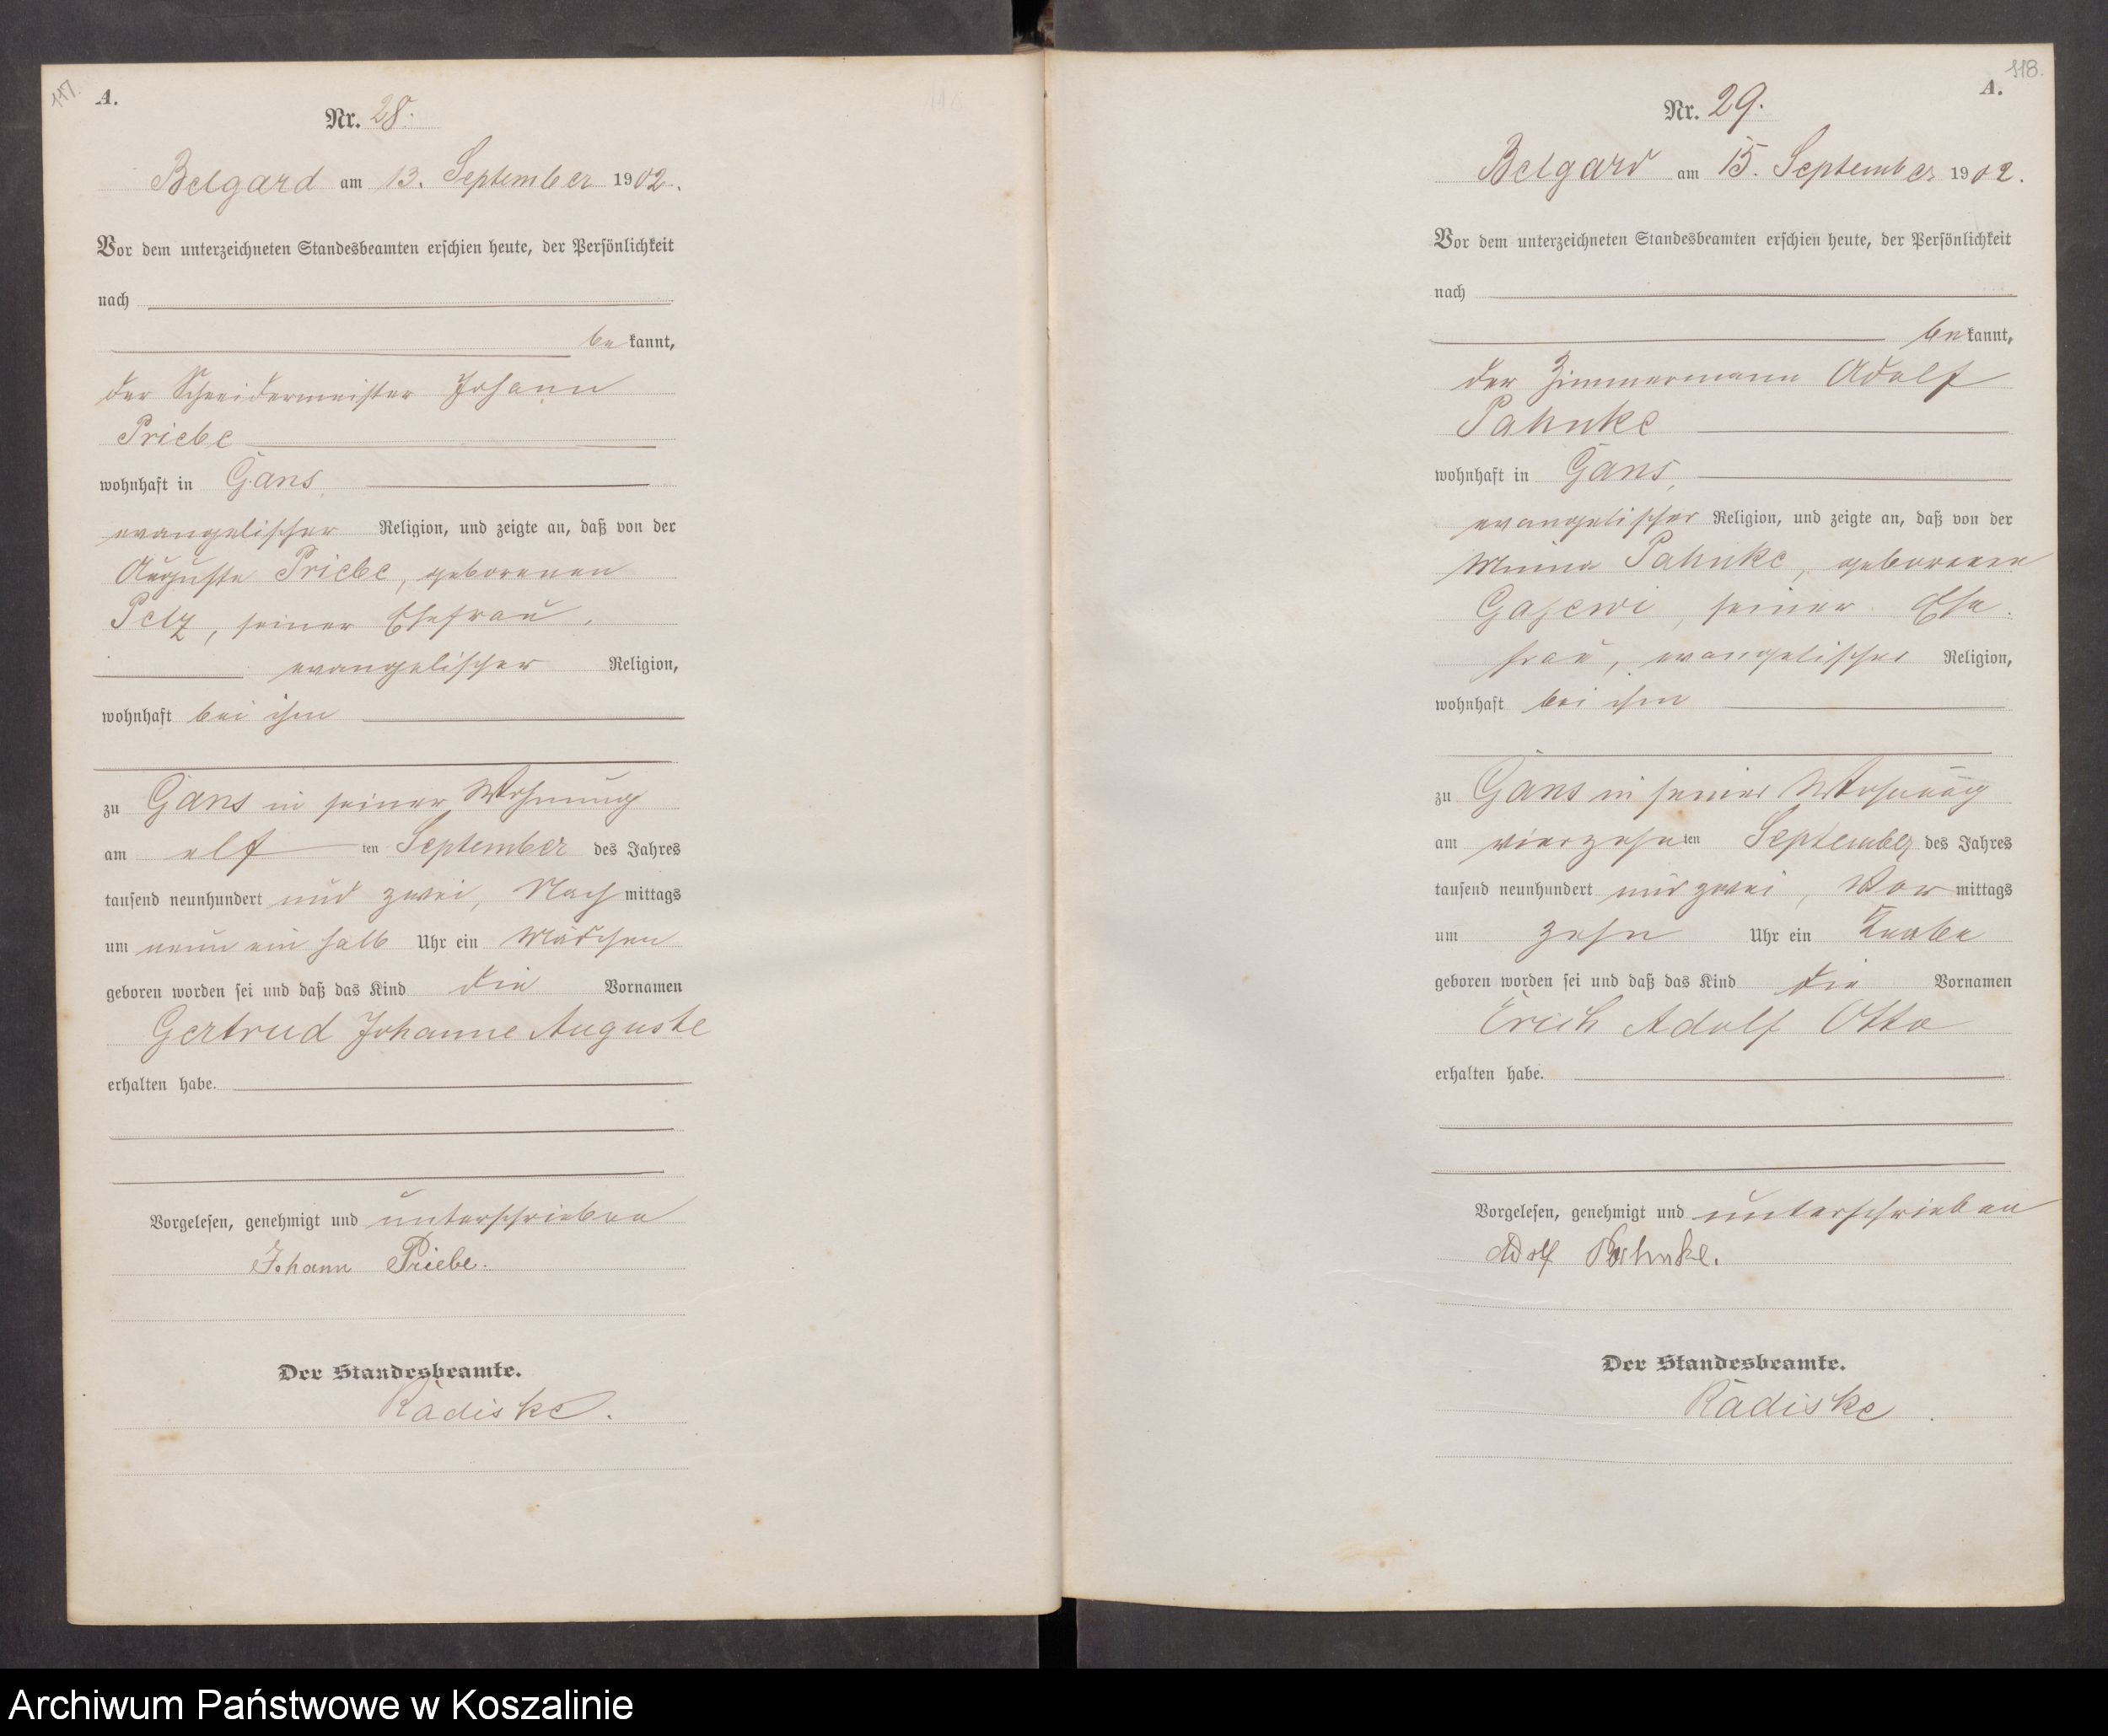 117.
A.
Nr. 28.
Belgard am 13. September 1902.
Vor dem unterzeichneten Standesbeamten erschien heute, der Persönlichkeit
nach
be kannt,
der Schneidermeister Johann
Priebe
wohnhaft in Gans,
evangelischer Religion, und zeigte an, daß von der
Auguste Priebe, geborenen
Pelz, seiner Ehefrau,
evangelischer Religion,
wohnhaft bei ihm
zu Gans in seiner Wohnung
am elf ten September des Jahres
tausend neunhundert und zwei, Nach mittags
um neun ein halb Uhr ein Mädchen
geboren worden sei und daß das Kind die Vornamen
Gertrud Johanne Auguste
erhalten habe.
Vorgelesen, genehmigt und unterschrieben
Johann Priebe.
Der Standesbeamte.
Radiske.
118.
A.
Nr. 29.
Belgard am 15. September 1902.
Vor dem unterzeichneten Standesbeamten erschien heute, der Persönlichkeit
nach
be kannt,
der Zimmermann Adolf
Pahnke
wohnhaft in Gans,
evangelischer Religion, und zeigte an, daß von der
Minna Pahnke, geborenen
seiner Ehe-
frau, evangelischer Religion,
wohnhaft bei ihm
zu Gans in seiner Wohnung
am vierzehnten September des Jahres
tausend neunhundert und zwei, Vor mittags
um zehn Uhr ein Knabe
geboren worden sei und daß das Kind die Vornamen
Erich Adolf Otto
erhalten habe.
Vorgelesen, genehmigt und unterschrieben
Adolf Pahnke.
Der Standesbeamte.
Radiske
Archiwum Państwowe w Koszalinie